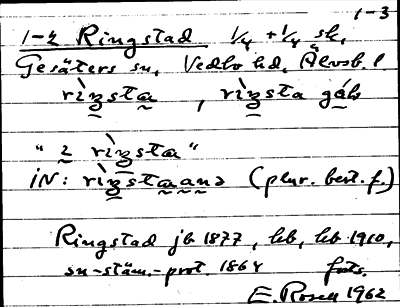 1-3
1-2 Ringstad 1/4 + 1/4 sk,
Gesäters sn, Vedbo hd, Älvsb. l
rìŋsta, rìŋsta gǻḷ
"2 rìŋsta"
iN: rìŋstaanə (plur. best. f.)
Ringstad jb 1877, leb, leb 1910,
sn-stäm.-prot. 1864 forts.
E. Rosell 1962